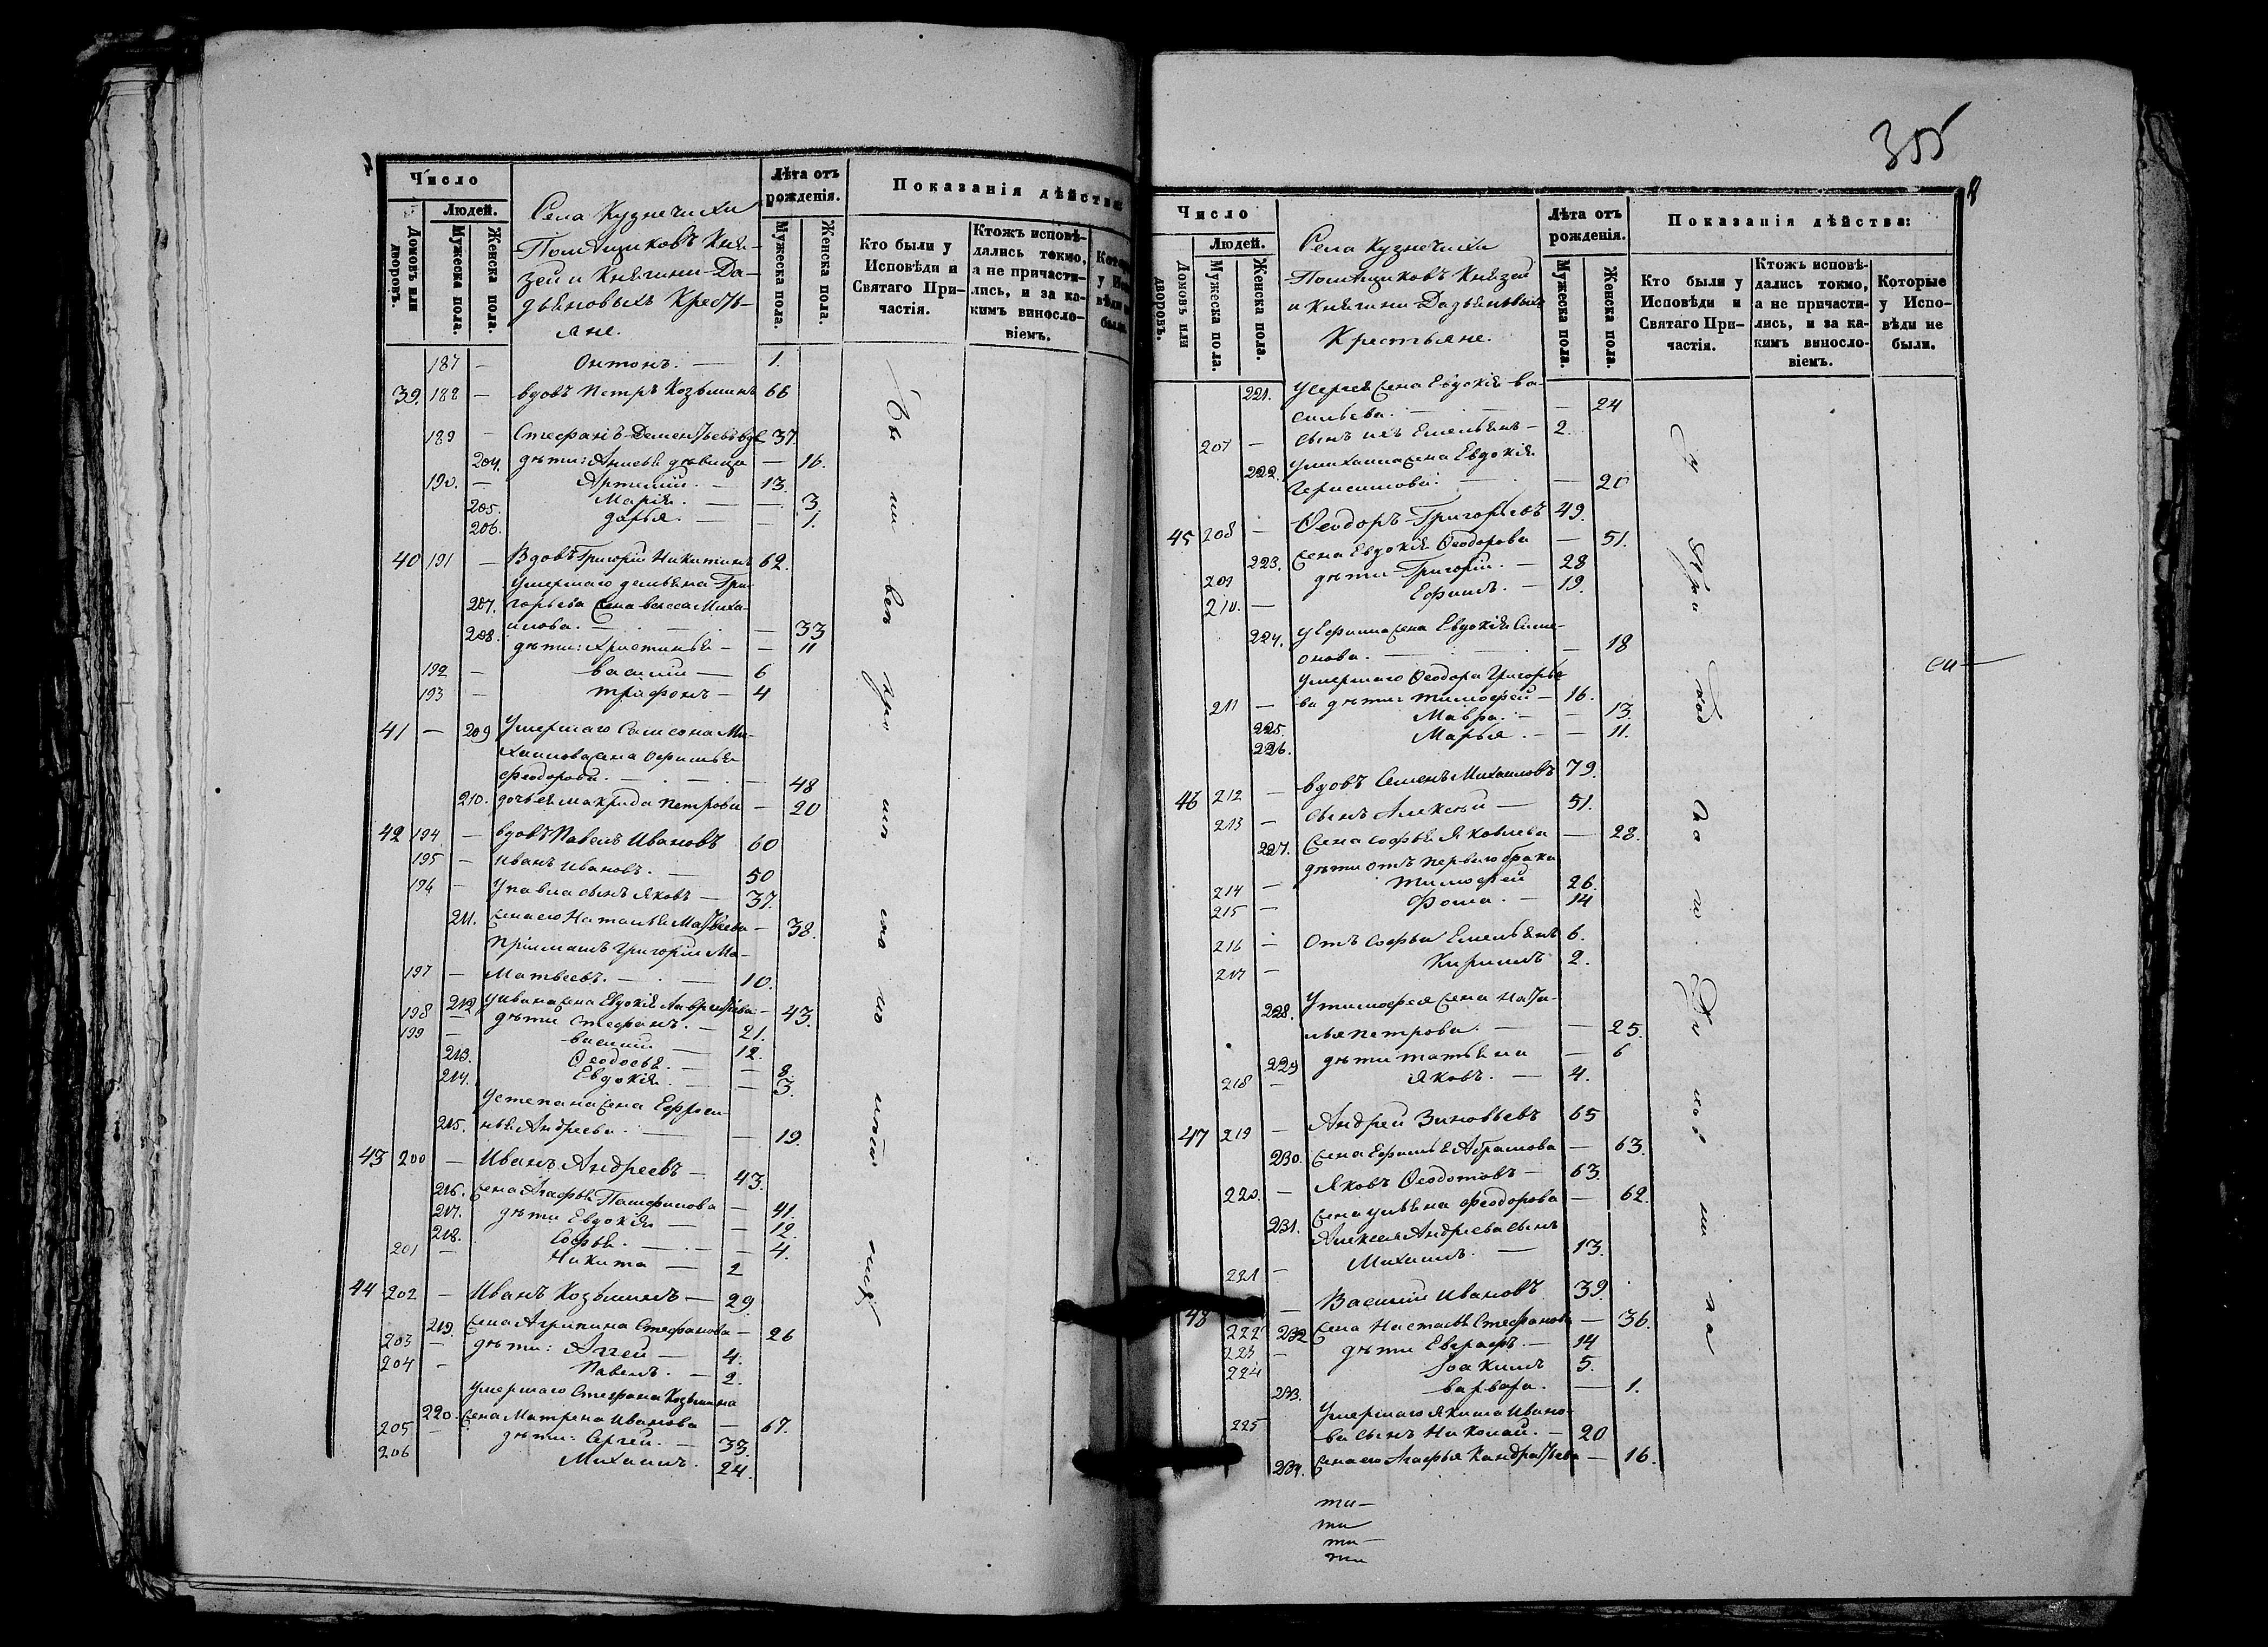 Число
Людей.
Домовъ или дворовъ.
Мужеска пола.
Женска пола.
Села Кузнечихи
Помѣщиковъ Кня-
зей и Княгини Да-
дьяновыхъ Кресть-
яне.
Лѣта отъ рожденія.
Мужеска пола.
Женска пола.
Показанія дѣйства:
Кто были у Исповѣди и Святаго При-частія.
Ктожъ исповѣ-дались токмо, а не причасти-лись, и за ка-кимъ винословіемъ.
187 — Онтонъ. — 1.
39. 188 — вдовъ Петръ Козьминъ 66
189 — Стефанъ Дементьевъ вдв 37.
204. дѣти: Анисья дѣвица — 16.
190. — Артемій. — 13.
205. Марія. — — 3.
206. дарья. — — 1.
40 191 — Вдовъ Григорій Никитинъ 62.
Умершаго демьяна Гри-
207. горьева жена васса Миха-
илова. — — 33
208. дѣти: Христинья — — 11
192 — василий — 6
193 — трифонъ — 4
41 — 209 Умершаго Самсона Ми-
хаилова жена Офимья
Феодорова. — — 48
210. дочь ея макрида петрова — 20
42 194. — вдовъ Павелъ Ивановъ 60
195 — иванъ ивановъ. — 50
196 — у павла сынъ яковъ — 37.
211. жена его Наталья Матвеева — 38.
Пріимышъ Григорій Ма-
197 — Матвеевъ. — 10.
212 у ивана жена Евдокія Лаврентьева — 43.
198 — дѣти Стефанъ. — 21.
199 — василий — 12.
213. Ѳеодосья. — — 8.
214. Евдокія. — — 3.
У степана жена Ефроси-
215. нья Андреева. — — 19.
43 200 — Иванъ Андреевъ — 43.
216. жена Агафья Памфилова — 41.
217. дѣти Евдокія — — 12.
218. Софья. — — 4.
201 — Никита — 2
44 202 — Иванъ Козьминъ — 29.
219. жена Агрипина Стефанова — 26
203 — дѣти: Аггей — 4.
204 — Павелъ. — 2.
Умершаго Стефана Козьмина
220. жена Матрена Иванова — 67.
205 — дѣти: Сергей. — 33.
206 Михаилъ. 24.
355
8
Число
Людей.
Домовъ или дворовъ.
Мужеска пола.
Женска пола.
Села Кузнечихи
Помѣщиковъ Князей
и Княгини Дадьяновыхъ
Крестьяне.
Лѣта отъ рожденія.
Мужеска пола.
Женска пола.
Показанія дѣйства:
Кто были у Исповѣди и Святаго При-частія.
Ктожъ исповѣ-дались токмо, а не причасти-лись, и за ка-кимъ винословіемъ.
Которые у Испо-вѣди не были.
221. У Сергея жена Евдокія ва-
сильева. — — 24
207 — сынъ ихъ Емельянъ — 2.
222. У михаила жена Евдокія
Герасимова. — — 20
45 208 — Ѳеодоръ Григорьевъ 49.
223. жена Евдокія Ѳеодорова — 51.
209 дѣти Григорій. — 28
210. — Ефимъ. — 19.
224. У Ефима жена Евдокія Симе-
онова. — — 18
Умершаго Ѳеодора Григорье-
211 — ва дѣти тимофей — 16.
225. Мавра. — — 13.
226. Марья. — — 11.
46 212 — вдовъ Семенъ Михаиловъ 79.
213 — сынъ Алексѣй — 51.
227. жена софья Яковлева — 28.
дѣти отъ перваго брака
214 — Тимофей 26.
215 — Фома. — 14
216 — Отъ софьи Емельянъ 6.
217 — Кирилъ 2.
228. У тимофея жена Ната-
лья петрова. — — 25.
229 дѣти татьяна — 6
218 — яковъ. — 4.
47 219 — Андрей Зиновьевъ 65
230. жена Ефимья Абрамова — 63.
220. — Яковъ Ѳеодотовъ — 63.
231. жена ульяна Феодорова — 62.
Алексея Андреева сынъ
221 — Михаилъ. — 13.
48 — Василий Ивановъ 39.
222 232 жена Настасья Стефанова — 36.
223 — дѣти Евграфъ. — 14
224 Іоакимъ 5.
233. варвара. — 1.
Умершаго Якима Ивано-
225 ва сынъ Николай. — 20
234. жена его Агафья Кандратьева — 16.
ти—
ти
ти—
ти